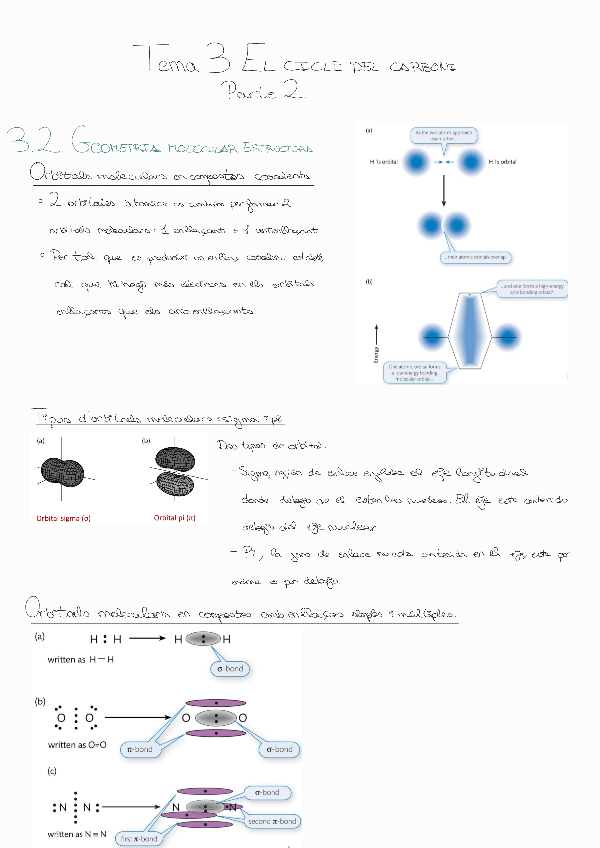 Tema 3 EL CICLE DEL CARBONI
Parte 2.
3.2. GEOMETRIA MOLECULAR ESTRUCTURA
Orbitals moleculars en compostos covalents
2 orbitales atomics es combinen per formar 2
orbitals moleculars: 1 enllaçant + 1 antienllaçant
Per tal que es produeixi un enllaç covalent estable
cal que hi hagi més electrons en els orbitals
enllaçants que els antienllaçants
(a)
As the two atoms approach
each other.
H 1s orbital
H 1s orbital
...their atomic orbitals overlap
(b)
...and one forms a high-energy
anti-bonding orbital*.
Energy
One atomic orbital forms
a low-energy bonding
molecular orbital...
Tipus d'orbitals moleculars: sigma i pi
(a)
(b)
Orbital sigma (σ)
Orbital pi (π)
Dos tipos de orbital:
- Sigma, región de enlace engloba el eje longitudinal
donde los núcleos. El eje esta contenido
del eje nuclear
- Pi, la zona de enlace no esta contenida en el eje esta por
encima o por debajo
Orbitals moleculars en compostos amb enllaços simples i múltiples.
(a)
H : H
H
H
written as H—H
σ-bond
(b)
O
O
O
O
written as O=O
π-bond
σ-bond
(c)
:N
N:
N
N
σ-bond
second π-bond
written as N≡N
first π-bond